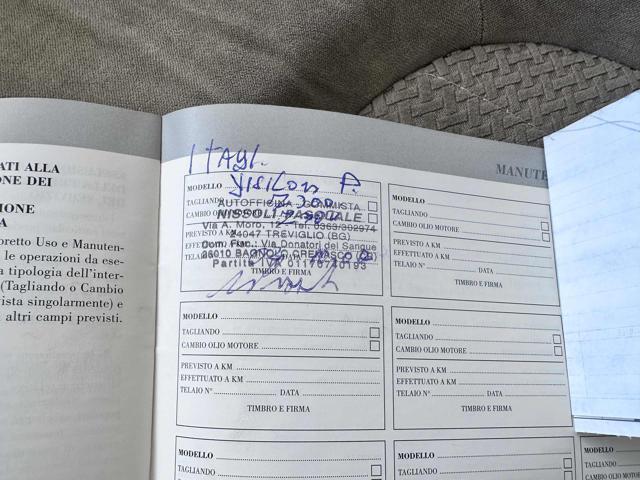 ATI ALLA
ONE DEI
IONE
A
oretto Uso e Manuten-
le operazioni da ese-
a tipologia dell'inter-
(Tagliando o Cambio
vista singolarmente) e
i altri campi previsti.
MANUTE
1 TAGL.
MODELLO
TAGLIANDO
CAMBIO OLIO
PREVISTO A KM
EFFETTUATO A KM
TELAIO
TIMBRO E FIRMA
AUTOFFICINA - GOMMISTA
NISSOLI PASQUALE
Via A. Moro, 12 - Tel. 0363/302974
24047 TREVIGLIO (BG)
Dom. Fisc.: Via Donatori del Sangue
Partita IVA
MODELLO
TAGLIANDO
CAMBIO OLIO MOTORE
PREVISTO A KM
EFFETTUATO A KM
TELAIO N° DATA
TIMBRO E FIRMA
MODELLO
TAGLIANDO
CAMBIO OLIO MOTORE
PREVISTO A KM
EFFETTUATO A KM
TELAIO N° DATA
TIMBRO E FIRMA
MODELLO
TAGLIANDO
CAMBIO OLIO MOTORE
PREVISTO A KM
EFFETTUATO A KM
TELAIO N° DATA
TIMBRO E FIRMA
MODELLO
TAGLIANDO
MODELLO
TAGLIANDO